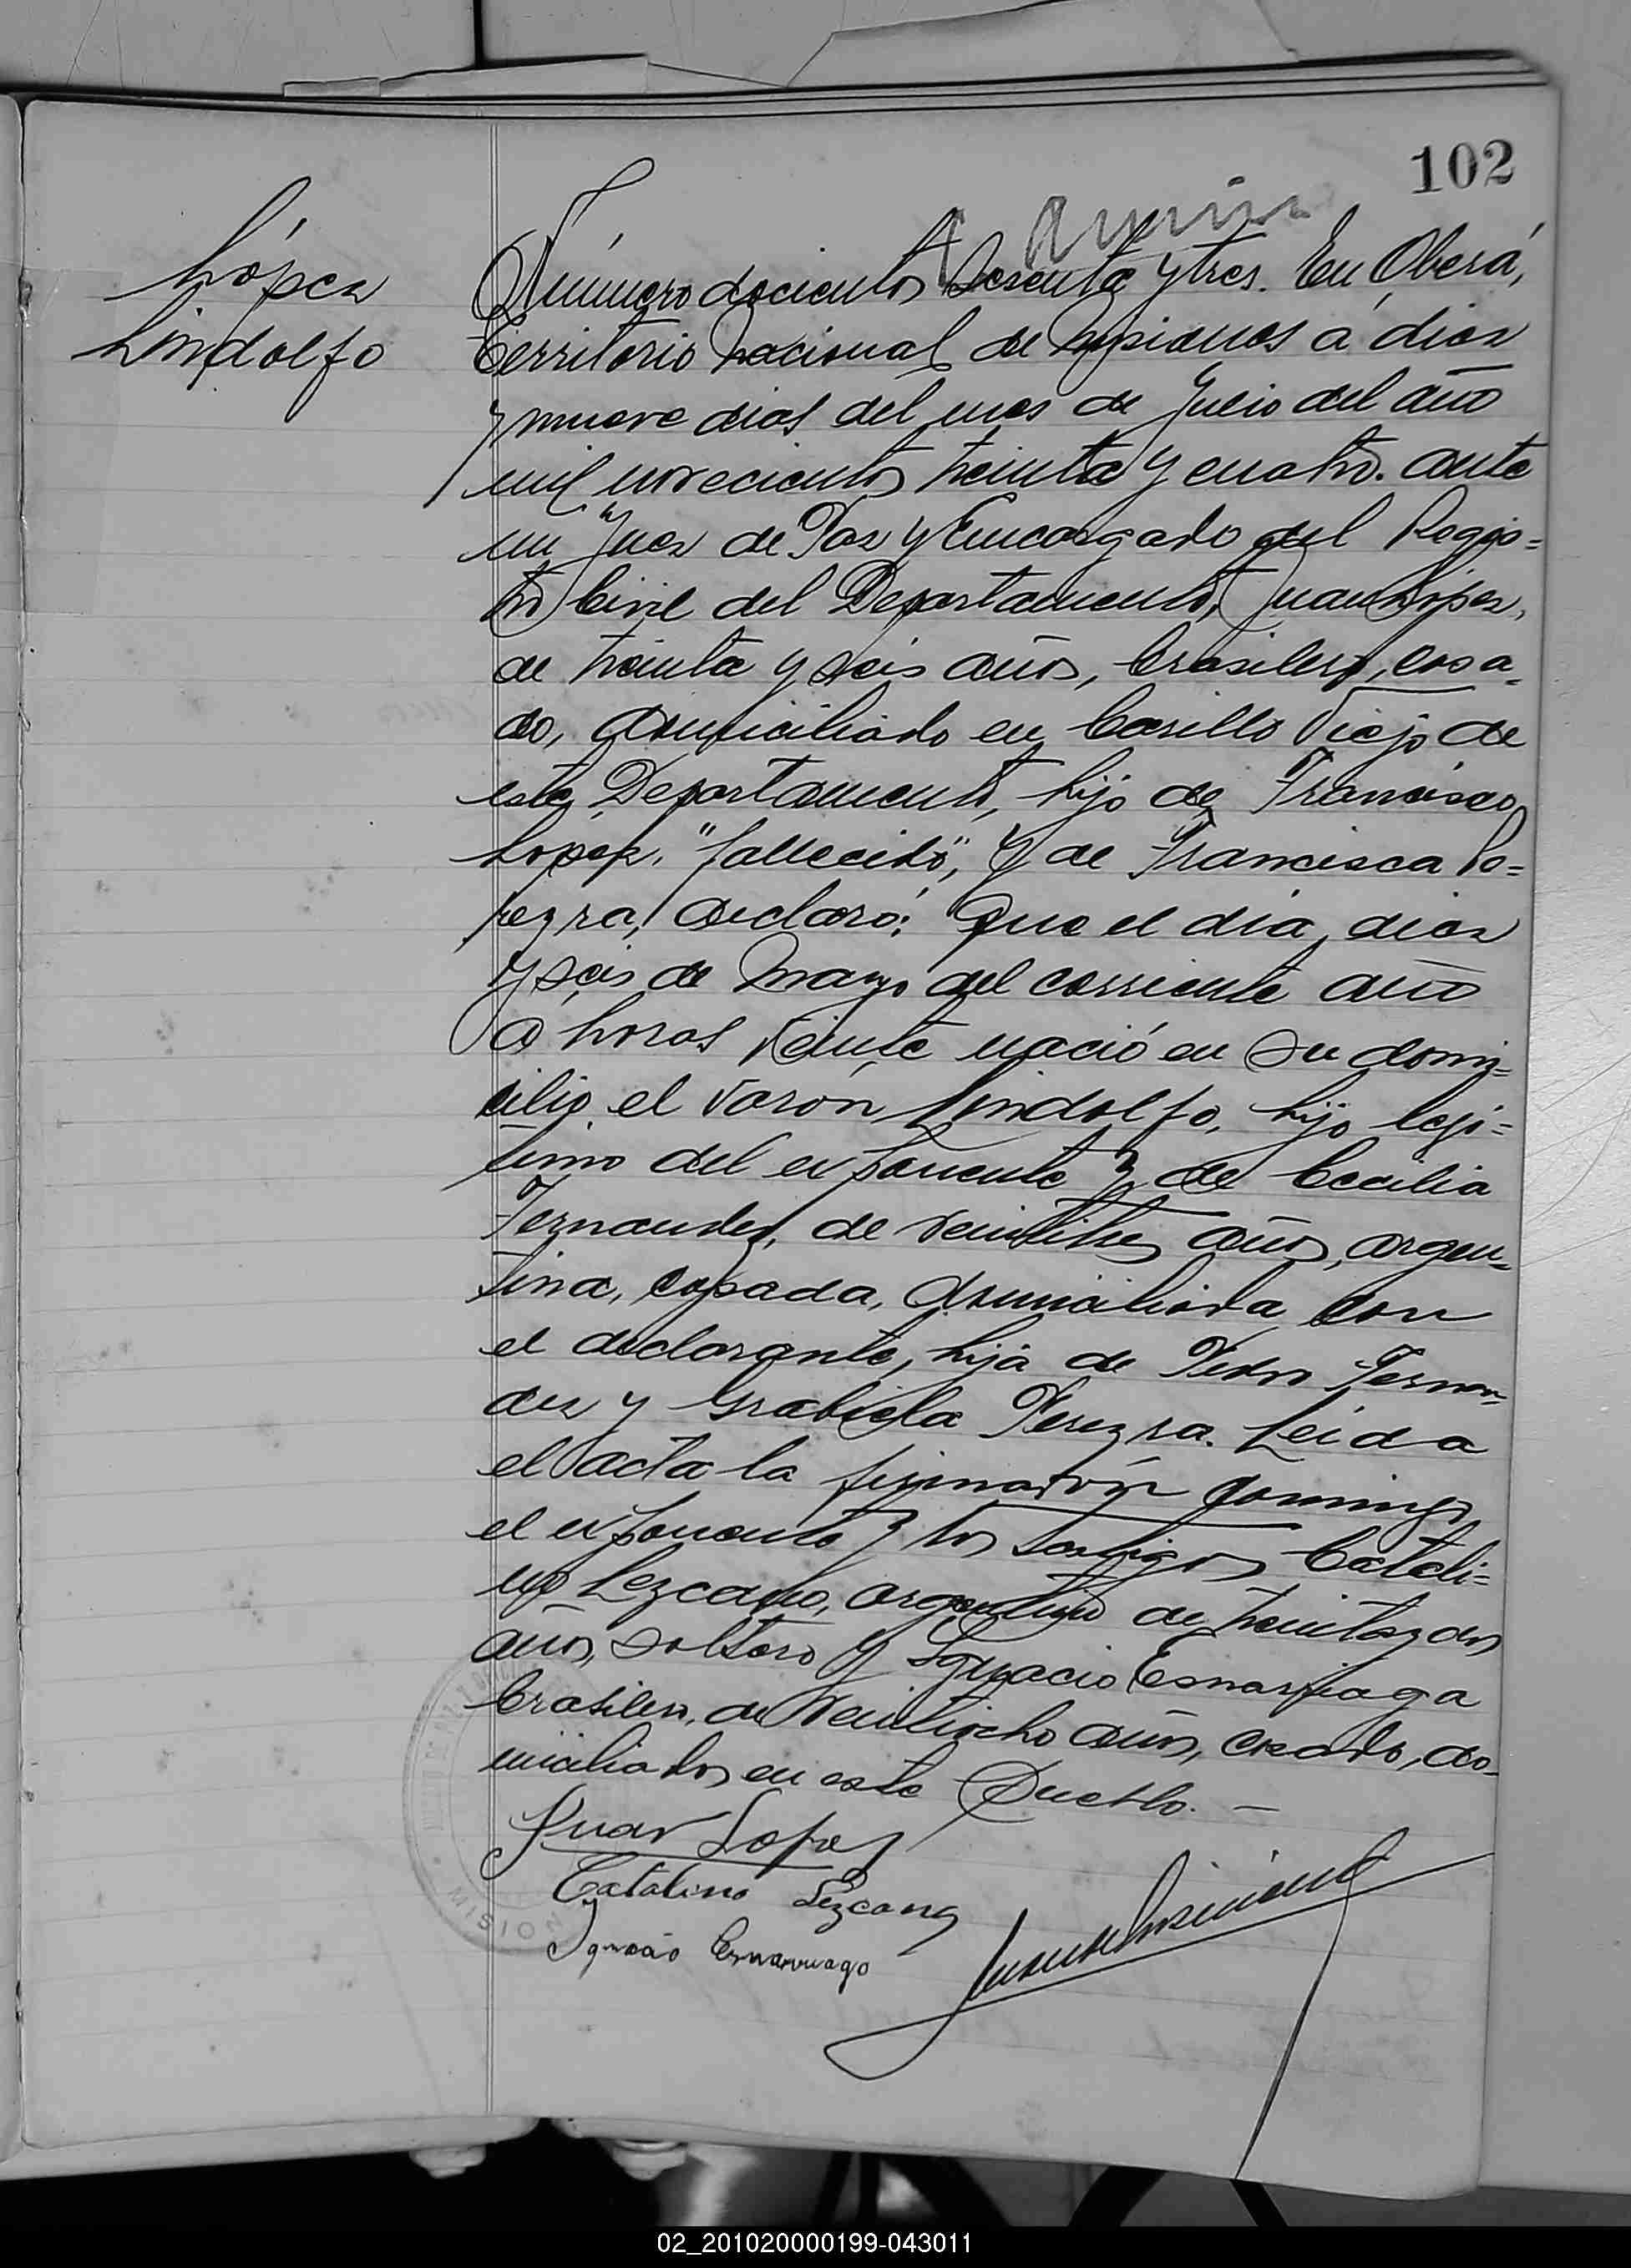 102
López
Lindolfo
Número docientos sesenta y tres. En Oberá,
Territorio Nacional de Misiones a diez
y nueve dias del mes de Julio del año
mil novecientos treinta y cuatro. ante
mi Juez de Paz y Encargado del Regis=
tro Civil del Departamento, Juan López,
de treinta y seis años, brasilero, casa-
do, domiciliado en Casillo Viejo de
este Departamento, hijo de Francisco
Lopez, "fallecido", y de Francisca Pe=
reyra, declaró: Que el día diez
y seis de Mayo del corriente año
a horas veinte nació en su domi=
cilio el varón Lindolfo, hijo legi=
timo del exponente y de Cecilia
Fernandez, de veintitres años, argen-
tina, casada, domiciliada con
el declarante, hija de Pedro Fernan-
dez y Grabiela Pereyra. Leida
el acta la firmaron conmigo
el exponente y los testigos Catali=
no Lezcano, argentino de treinta y dos
años, soltero y Ignacio Esnarriaga
brasilero, de veintiocho años, casado, do-
miciliados en este Pueblo. —
Juan Lopez
Catalino Lezcano
Ignacio Esnarriaga
MISION
02_201020000199-043011